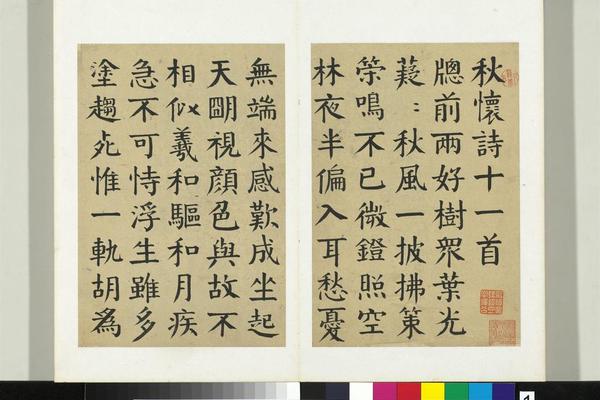 秋懷詩十一首
牕前兩好樹衆葉光
薿〻秋風一披拂策
策鳴不已微鐙照空
牀夜半偏入耳愁憂
無端來感歎成坐起
天朙視顏色與故不
相似羲和驅和月疾
急不可恃浮生雖多
塗趨死惟一軌胡爲